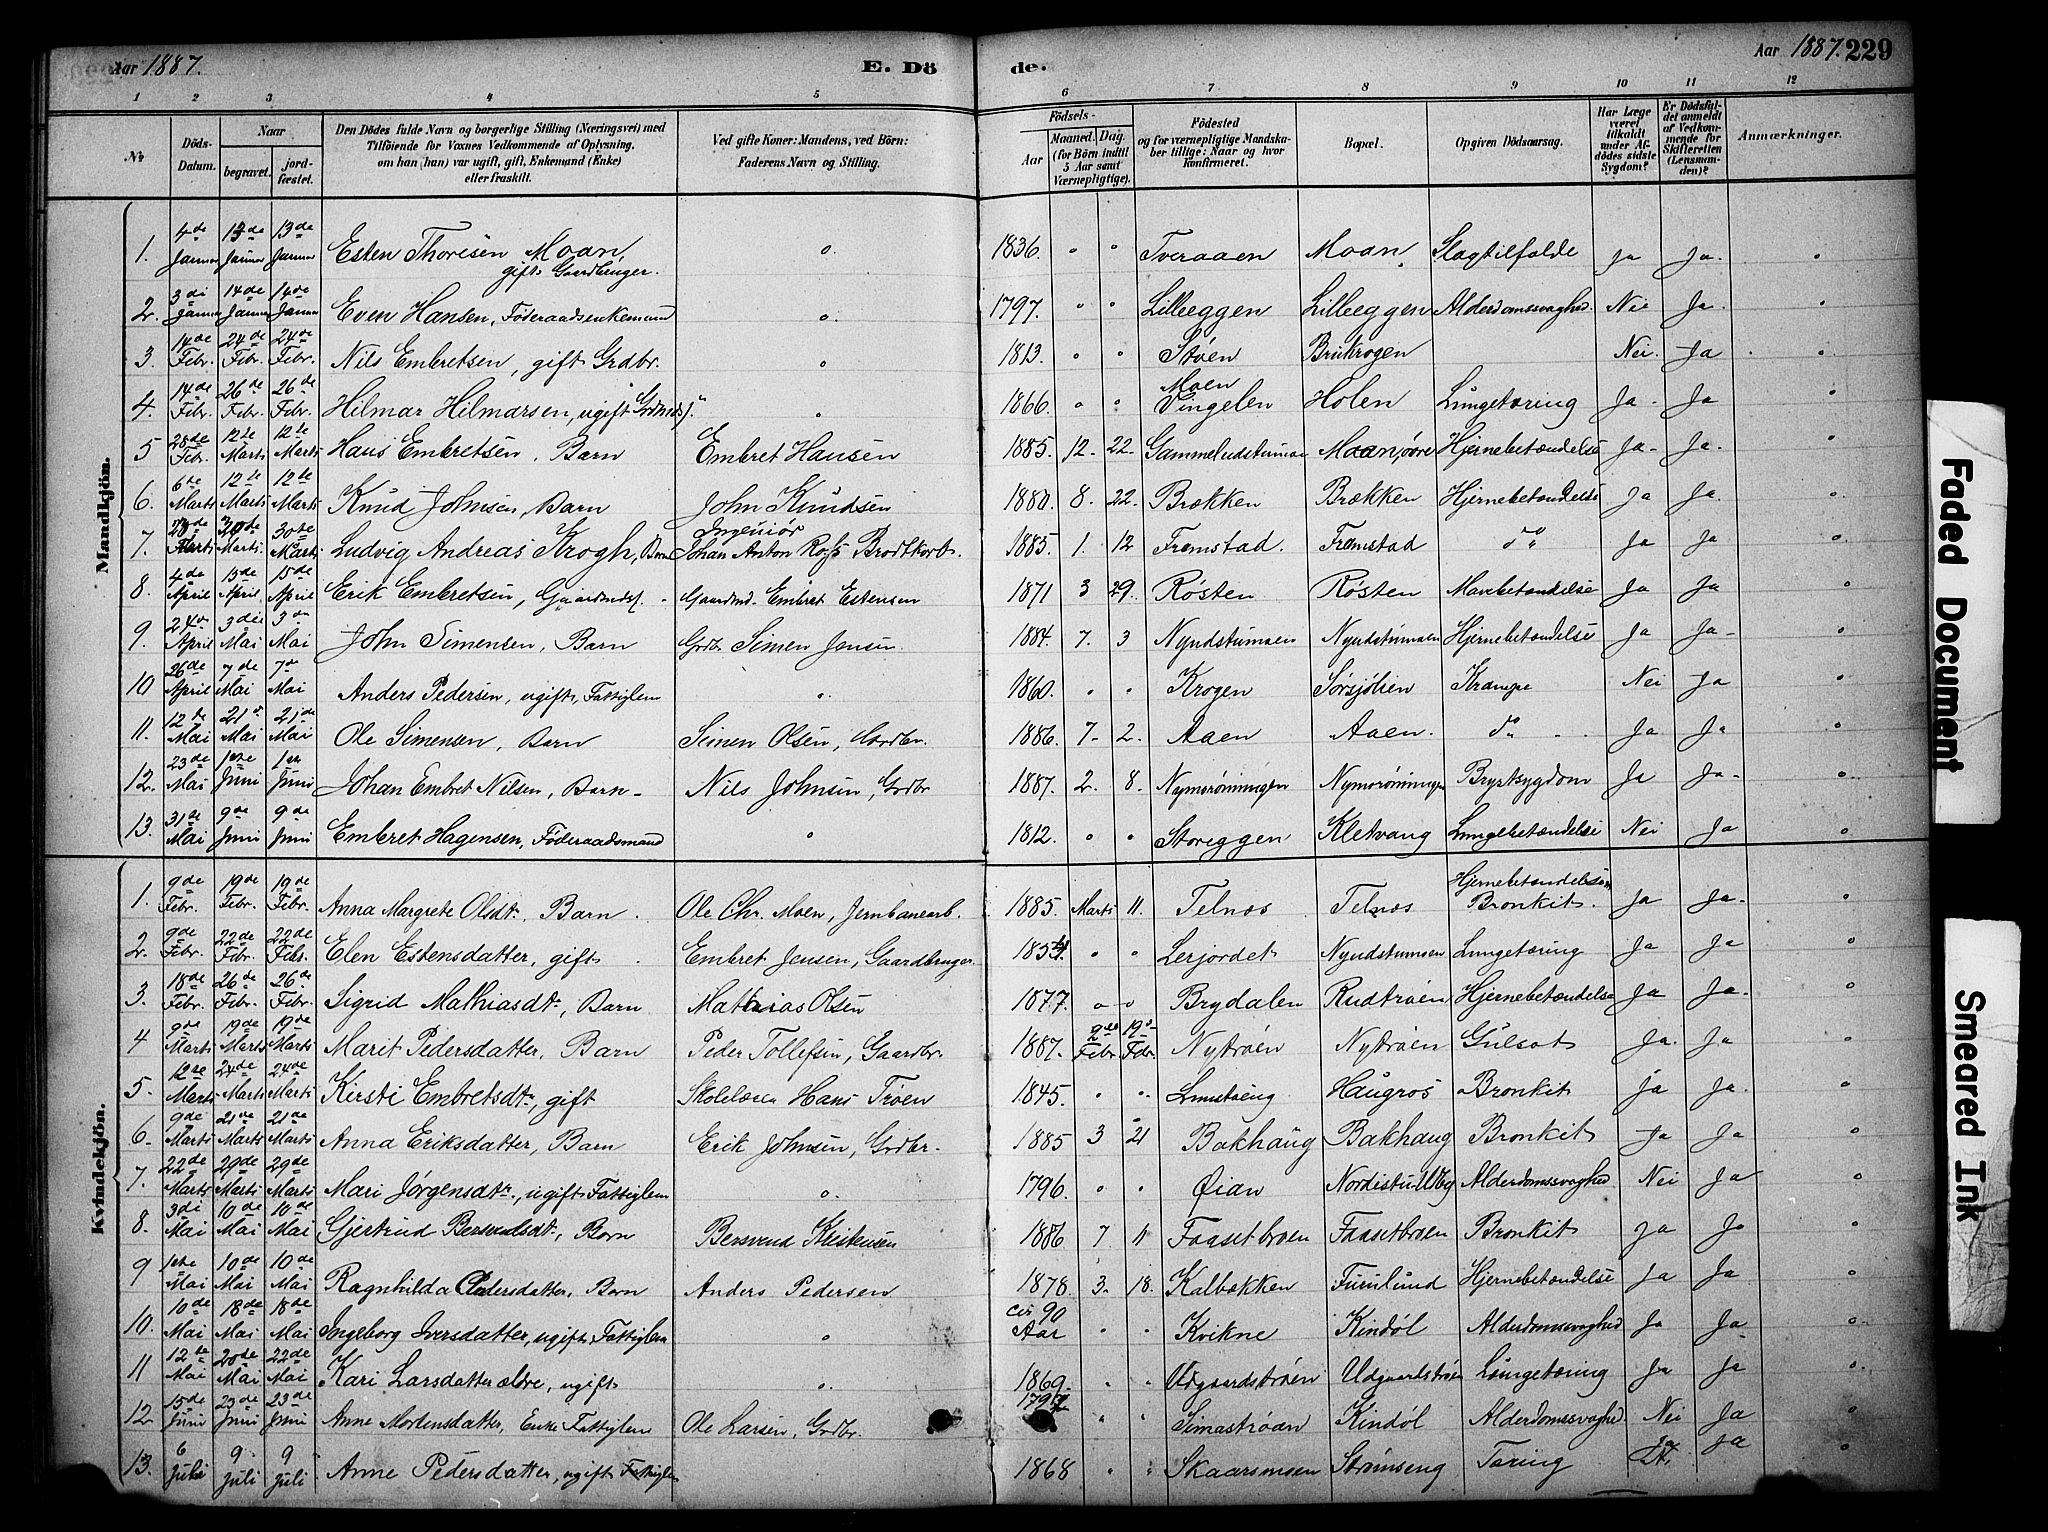 Aar 1887. E. Dö de. Aar 1887. 229
1 2 3 4 5 6 7 8 9 10 11 12
No
Döds-Datum.
Naar
begravet.
jord-fæstet.
Den Dödes fulde Navn og borgerlige Stilling (Næringsvei) med
Tilföiende for Voxnes Vedkommende af Oplysning,
om han (hun) var ugift, gift, Enkemand (Enke)
eller fraskilt.
Ved gifte Koner: Mandens, ved Börn:
Faderens Navn og Stilling.
Födsels-
Aar
Maaned. Dag.
(for Börn indtil
5 Aar samt
Værnepligtige).
Födested
og for værnepligtige Mandska-
ber tillige: Naar og hvor
konfirmeret.
Bopæl.
Opgiven Dödsaarsag.
Har Læge
været
tilkaldt
under Af-
dödes sidste
Sygdom?
Er Dödsfal-
det anmeldt
af Vedkom-
mende for
Skifteretten
(Lensman-
den)?
Anmærkninger.
Mandkjön.
1. 4de Januar 13de Januar 13de Januar Esten Thoresen Moan, gift Gaardbruger. " 1836. " " Tveraaen Moan Slagtilfælde Ja Ja. "
2. 3di Januar 14de Januar 14de Januar Even Hansen, Föderaadsenkemand " 1797. " " Lilleeggen Lilleeggen Alderdomssvaghed Nei Ja. "
3. 14de Febr. 24de Febr. 24de Febr. Nils Embretsen, gift Grdbr. " 1813. " " Støen Brukrogen Nei. Ja "
4. 14de Febr. 26de Febr. 26de Febr. Hilmar Hilmarsen, ugift " 1866. " " Moen Vingelen Holen Lungetæring Ja. Ja "
5 28de Febr. 12te Marts 12te Marts Hans Embretsen, Barn Embret Hansen 1885. 12. 22. Moan, øvre Hjernebetændelse Ja. Ja. "
6. 6te Marts 12te Marts 12te Marts Knud Johnsen, Barn John Knudsen 1880. 8. 22. Brækken Brækken Hjernebetændelse Ja Ja. "
7. Marts 30te Marts Ludvig Andreas Krogh, Barn Ingeniør Johan Anton Rofs Brodtkorb. 1885. 1. 12 Fremstad. Fremstad do Ja Ja "
8. 4de April 15de April 15de April Erik Embretsen, Gaardmds. Gaardmd. Embret Estensen 1871 3 29. Røsten Røsten Mavebetændelse Ja Ja "
9. 24de April 3die Mai 3die Mai John Simensen, Barn Grdbr. Simen Jensen. 1884. 7. 3 Nyudstumoen Nyudstumoen Hjernebetændelse Ja Ja. "
10 26de April 7de Mai 7de Mai Anders Pedersen, ugift, Fattiglem " 1860. " " Krogen Sørsjølien Krampe Nei Ja "
11. 12te Mai 21de Mai 21de Mai Ole Simensen, Barn Simen Olsen, Gardbr. 1886. 7. 2. Aaen Aaen. do Ja Ja "
12. 23de Mai 1ste Juni 1ste Juni Johan Embret Nilsen, Barn. Nils Johnsen, Grdbr 1887. 2. 8. Nymorønningen Nymorønningen Brystsygdom Ja Ja. "
13. 31de Mai 9de Juni 9de Juni Embret Hagensen, Föderaadsmand " 1812. " " Storeggen Kletvang Lungebetændelse Nei Ja "
Kvindekjön.
1. 9de Febr. 19de Febr. 19de Febr. Anna Margrete Olsdt, Barn. Ole Chr. Moen, Jernbanearb. 1885. Marts 11. Telnæs Telnæs Hjernebetændelse Bronkit. Ja Ja. "
2. 9de Febr. 22de Febr. 22de Febr. Elen Estensdatter, gift. Embret Jensen, Gaardbruger 1854. " " Lerjordet Nyudstumoen Lungetæring Ja Ja "
3. 18de Febr. 26de Febr. 26de Febr. Sigrid Mathiasdt., Barn Mathias Olsen 1877. " " Brydalen Rudtrøen Hjernebetændelse Ja Ja. "
4 9de Marts 19de Marts 19de Marts Marit Pedersdatter, Barn Peder Tollefsen, Gaardbr. 1887. 9de Febr. 19de Febr. Nytrøen Nytrøen Gulsot Ja. Ja "
5. 12te Marts 24de Marts 24de Marts Kirsti Embretsdt., gift Skolelærer Hans Trøen 1845. " " Haugros Bronkit Ja Ja. "
6. 9de Marts 21de Marts 21de Marts Anna Eriksdatter, Barn Erik Johnsen, Grdbr. 1885 3 21 Bakhaug Bakhaug Bronkit Ja Ja "
7. 22de Marts 29de Marts 29de Marts Mari Jørgensdt., ugift Fattiglem " 1796. " " Øian Alderdomssvaghed Nei Ja "
8. 3di Mai 10de Mai 10de Mai Gjertrud Bersvendsdt., Barn Bersvend 1886 7 11 Faasetbroen Faasetbroen Bronkit Ja Ja "
9 1ste Mai 10de Mai 10de Mai Ragnhilda Andersdatter, Barn Anders Pedersen 1878. 3. 18. Kalbækken Furulund Hjernebetændelse Ja Ja "
10. 10de Mai 18de Mai 18de Mai Ingeborg Iversdatter, ugift, Fattiglem " cir 90 Aar " " Kvikne Kindøl Alderdomssvaghed Ja Ja "
11 12te Mai 20de Mai 22de Mai Kari Larsdatter ældre, ugift " 1869. " " Udgaardstrøen Udgaardstrøen Lungetæring Ja Ja "
12. 15de Juni 23de Juni 23de Juni Anne Mortensdatter, Enke Fattiglem Ole Larsen, Grdbr. " " Simastrøan Kindøl Alderdomssvaghed Nei Ja "
13. 6 Juli 9 Juli 9 Juli Anne Pedersdatter, ugift Fattiglem 1868 " " Skaarsmoen Strømseng Tæring Ja Ja "
Faded Document
Smeared Ink